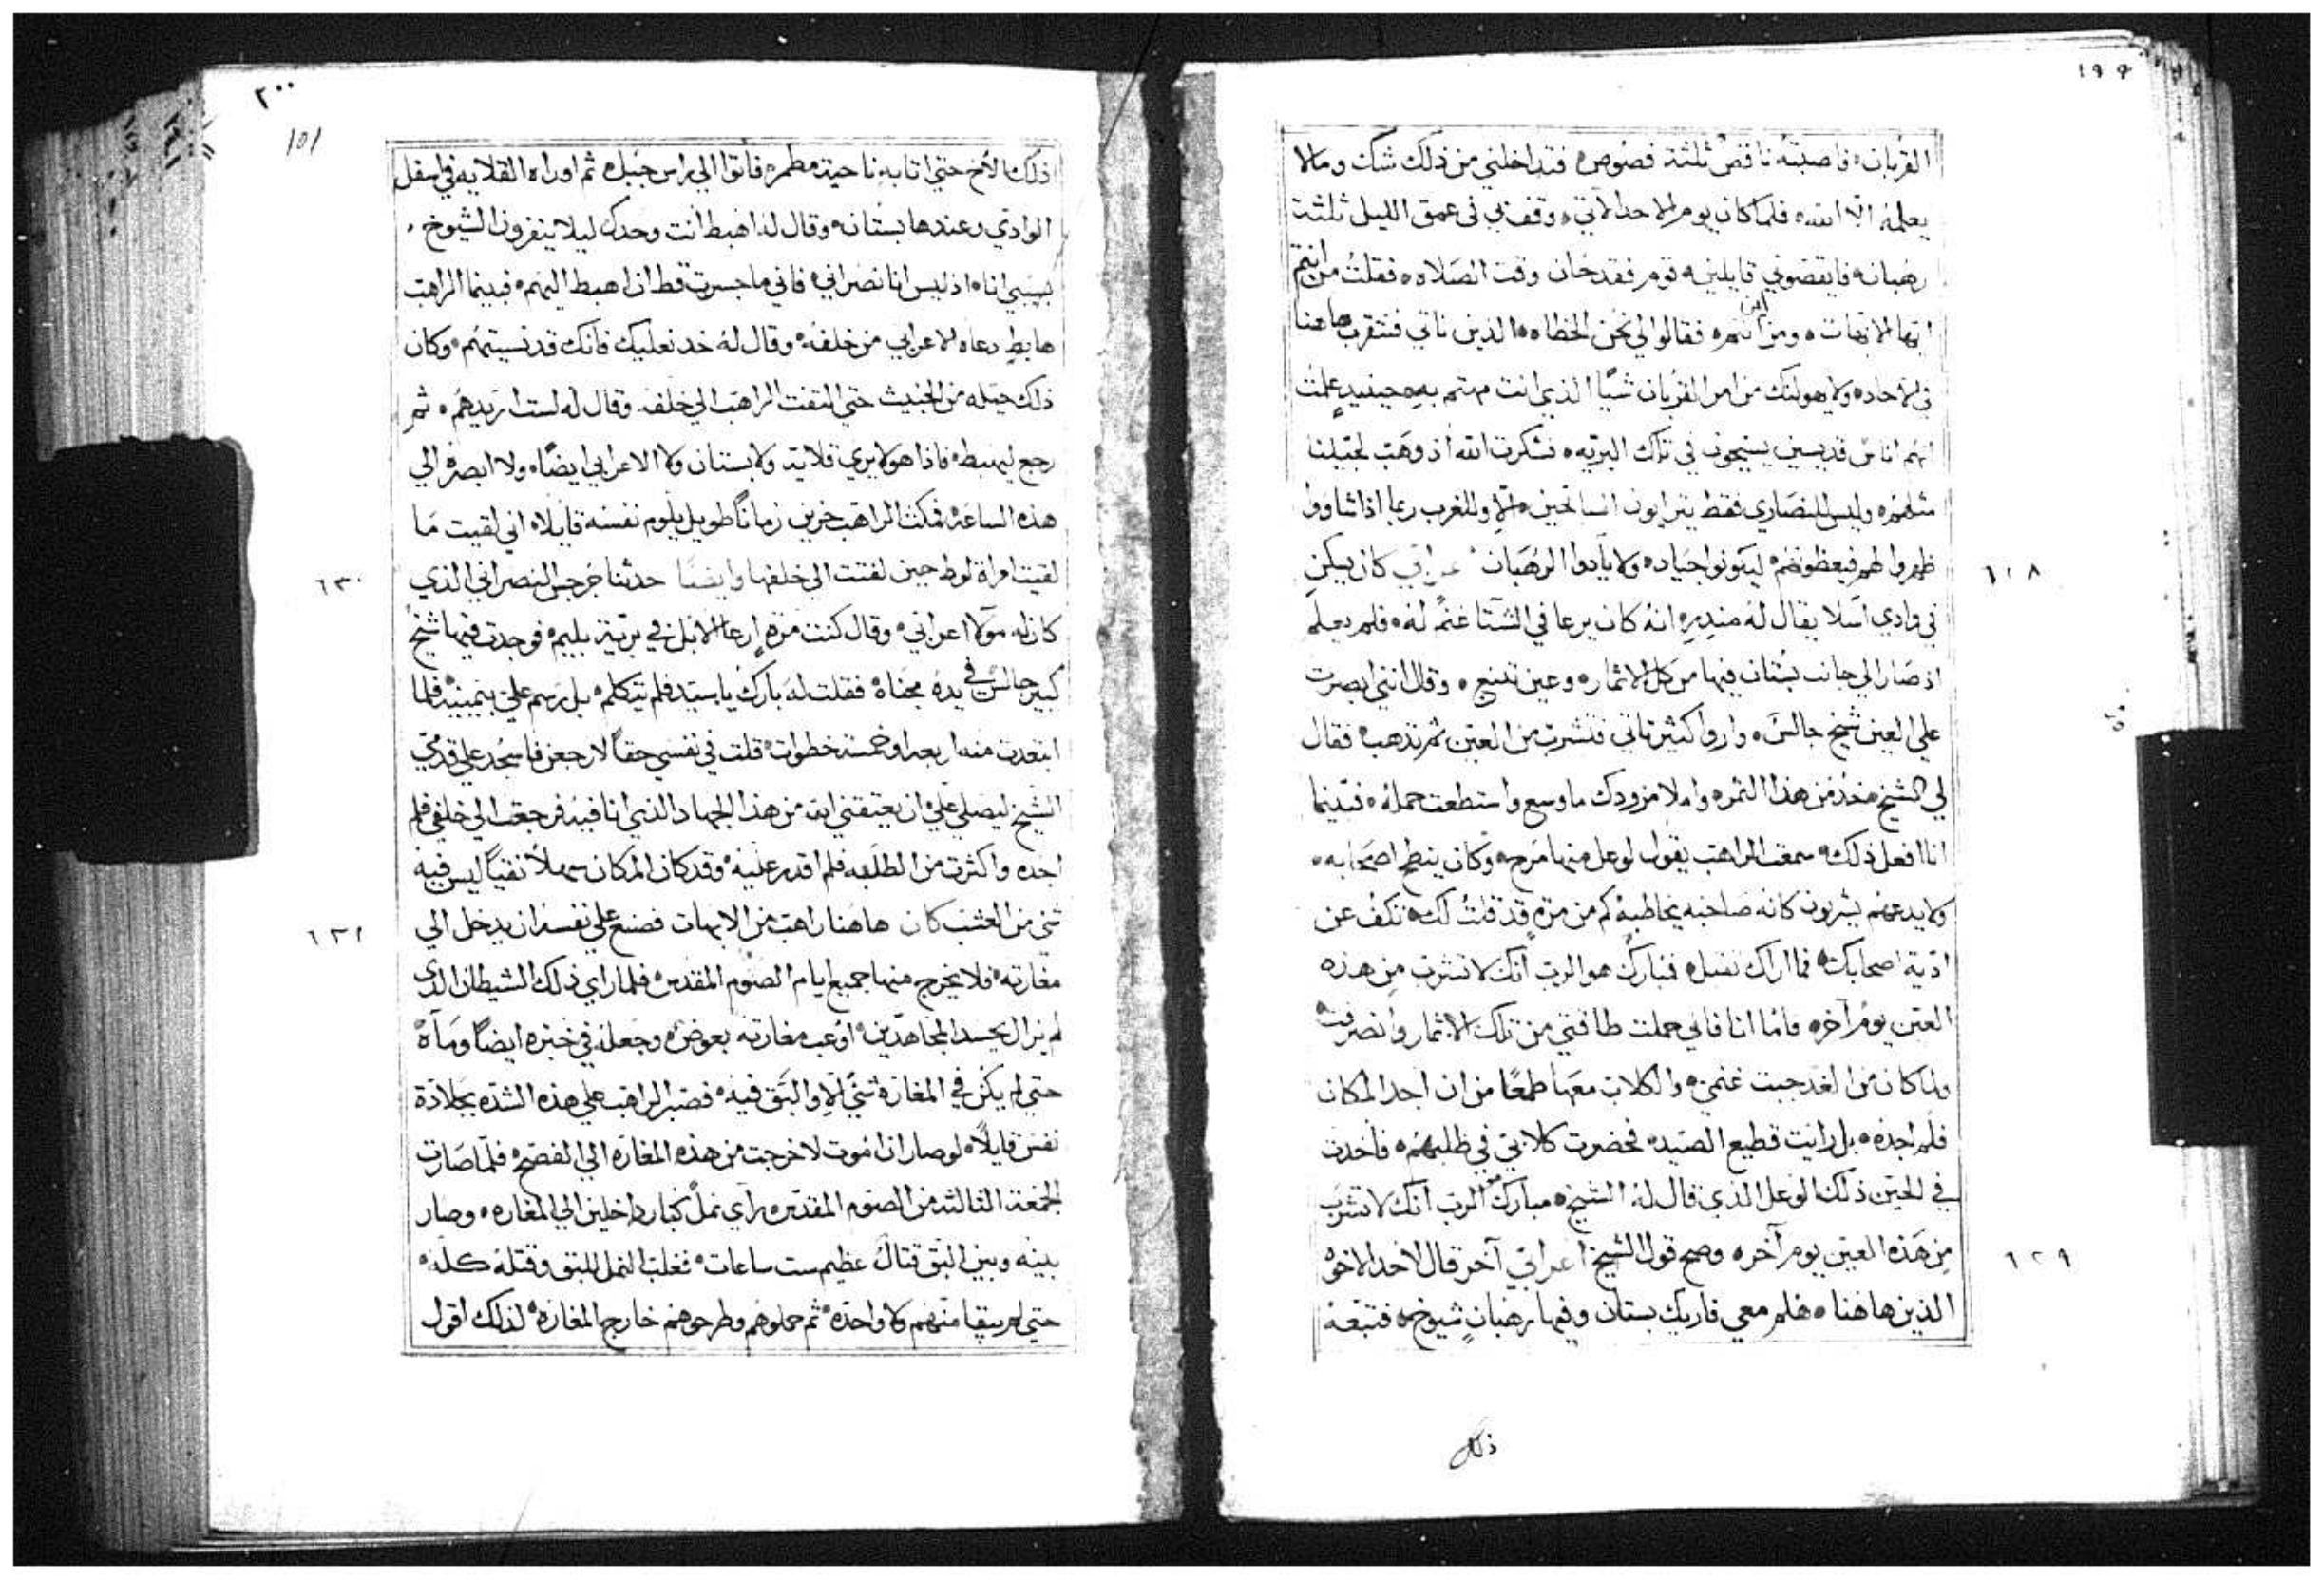 ١٩٩
القربان، فاصبته ناقص ثلثة فصوص، فتداخلني من ذلك شك ومالا
يعلمه الا الله، فلما كان يوم الاحد الاتي، وقف بي في عمق الليل ثلثة
رهبان، فايقضوني قايلين، قوم فقد حان وقت الصلاه، فقلت من انتم
ايها الابهات، ومن اين انتم، فقالوا لي نحن الخطاه، الذين ناتي فنتقرب هاهنا
في الاحاد، ولا يهولنك من امر القربان شيا الذي انت مهتم به، حينيد علمت
انهم اناس قديسين يسيحون في تلك البريه، فشكرت الله اذ وهب لجيلنا
مثلهم، وليس للنصاري فقط يترايون السايحين، الا وللغرب ربما اذا شاووا
ظهروا لهم فيعظونهم ليكونوا جياد، ولا يآدوا الرهبان، عرابي كان يسكن
٦٢٨
في وادي اسلا يقال له منديره انه كان يرعا في الشتا غنم له، فلم يعلم
اذ صار الي جانب بستان فيها من كل الاثمار، وعين تنبع، وقال انني ابصرت
علي العين شيخ جالس، واروا كثير تاتي فتشرب من العين ثم تذهب، فقال
لي الشيخ خذ من هذا الثمر، واملا مزودك ما وسع واستطعت حمله، فبينما
انا افعل ذلك، سمعت الراهب يقول لوعل منها مرح، وكان ينطح اصحابه،
ولا يدعهم يشربون كانه صاحبه يخاطبه، كم من مرة قد قلت لك، تكف عن
ادية اصحابك، فما اراك تقبل، فتبارك هو الرب انك لا تشرب من هذه
العين يوم آخر، فاما انا فاني حملت طاقتي من تلك الاثمار وانصرفت،
ولما كان من الغد جبت غنمي، والكلاب معها طمعًا من ان اجد المكان
فلم اجده، بل رايت قطيع الصيد، فحضرت كلابي في طلبهم، فاخدت
في الحين ذلك الوعل الذي قال له الشيخ، مبارك الرب انك لا تشرب
من هذه العين يوم آخر، وصح قول الشيخ اعرابي آخر قال لاحد الاخوة
٦٢٩
الذين هاهنا، هلم معي فاريك بستان وفيها رهبان شيوخ، فتبعه
ذلك
٢٠٠
151
ذلك الاخ حتي اتا به ناحية مطمره فاتوا الي راس جبل، ثم اوراه القلايه في اسفل
الوادي وعندها بستان، وقال له اهبط انت وحدك ليلا ينفرون الشيوخ،
بسببي انا، اذ ليس انا نصراني، فاني ما جسرت قط ان اهبط اليهم، فبينما الراهب
هابط دعاه الاعرابي من خلفه، وقال له خد نعليك فانك قد نسيتهم، وكان
ذلك حيله من الخبيث حتي التفت الراهب الي خلفه وقال له لست اريدهم، ثم
رجع ليهبط، فاذا هو لا يري قلاية ولا بستان ولا الاعرابي ايضًا، ولا ابصره الي
هذه الساعة، فمكث الراهب حزين زمانًا طويل يلوم نفسه قايلا، اني لقيت ما
لقيت امراة لوط حين لفتت الي خلفها وايضًا حدثنا جرجس النصراني الذي
٦٣٠
كان له مولا اعرابي، وقال كنت مرة ارعا الابل في برية بليم، فوجدت فيها شيخ
كبير جالس في يده مخناة، فقلت له بارك يا سيد، فلم يتكلم، بل رسم علي بيمينه، فلما
ابتعدت منه اربعه او خمسة خطوات، قلت في نفسي حقًا لارجعن فاسجد علي قدمي
الشيخ ليصلي علي ان يعتقني الله من هذا الجهاد الذي انا فيه، فرجعت الي خلفي فلم
اجده، واكثرت من الطلبه فلم اقدر عليه، وقد كان المكان سهلًا نقيًا ليس فيه
شي من العشب كان هاهنا راهب من الابهات فصنع علي نفسه ان يدخل الي
٦٣١
مغارته، فلا يخرج منها جميع ايام الصوم المقدس، فلما راي ذلك الشيطان الذي
لم يزال يحسد المجاهدين، اوعب مغارته بعوض، وجعله في خبزه ايضًا ومآه
حتي لم يكن في المغارة شي الا والبق فيه، فصبر الراهب علي هذه الشده بجلادة
نفس قايلًا، لو صار ان اموت لا خرجت من هذه المغاره الي الفصح، فلما صارت
الجمعة الثالثة من الصوم المقدس، راي نمل كبار داخلين الي المغاره، وصار
بينه وبين البق قتال عظيم ست ساعات، فغلب النمل للبق وقتله كله،
حتي لم يبقا منهم ولا واحده، ثم حملوهم وطرحوهم خارج المغارة، لذلك اقول